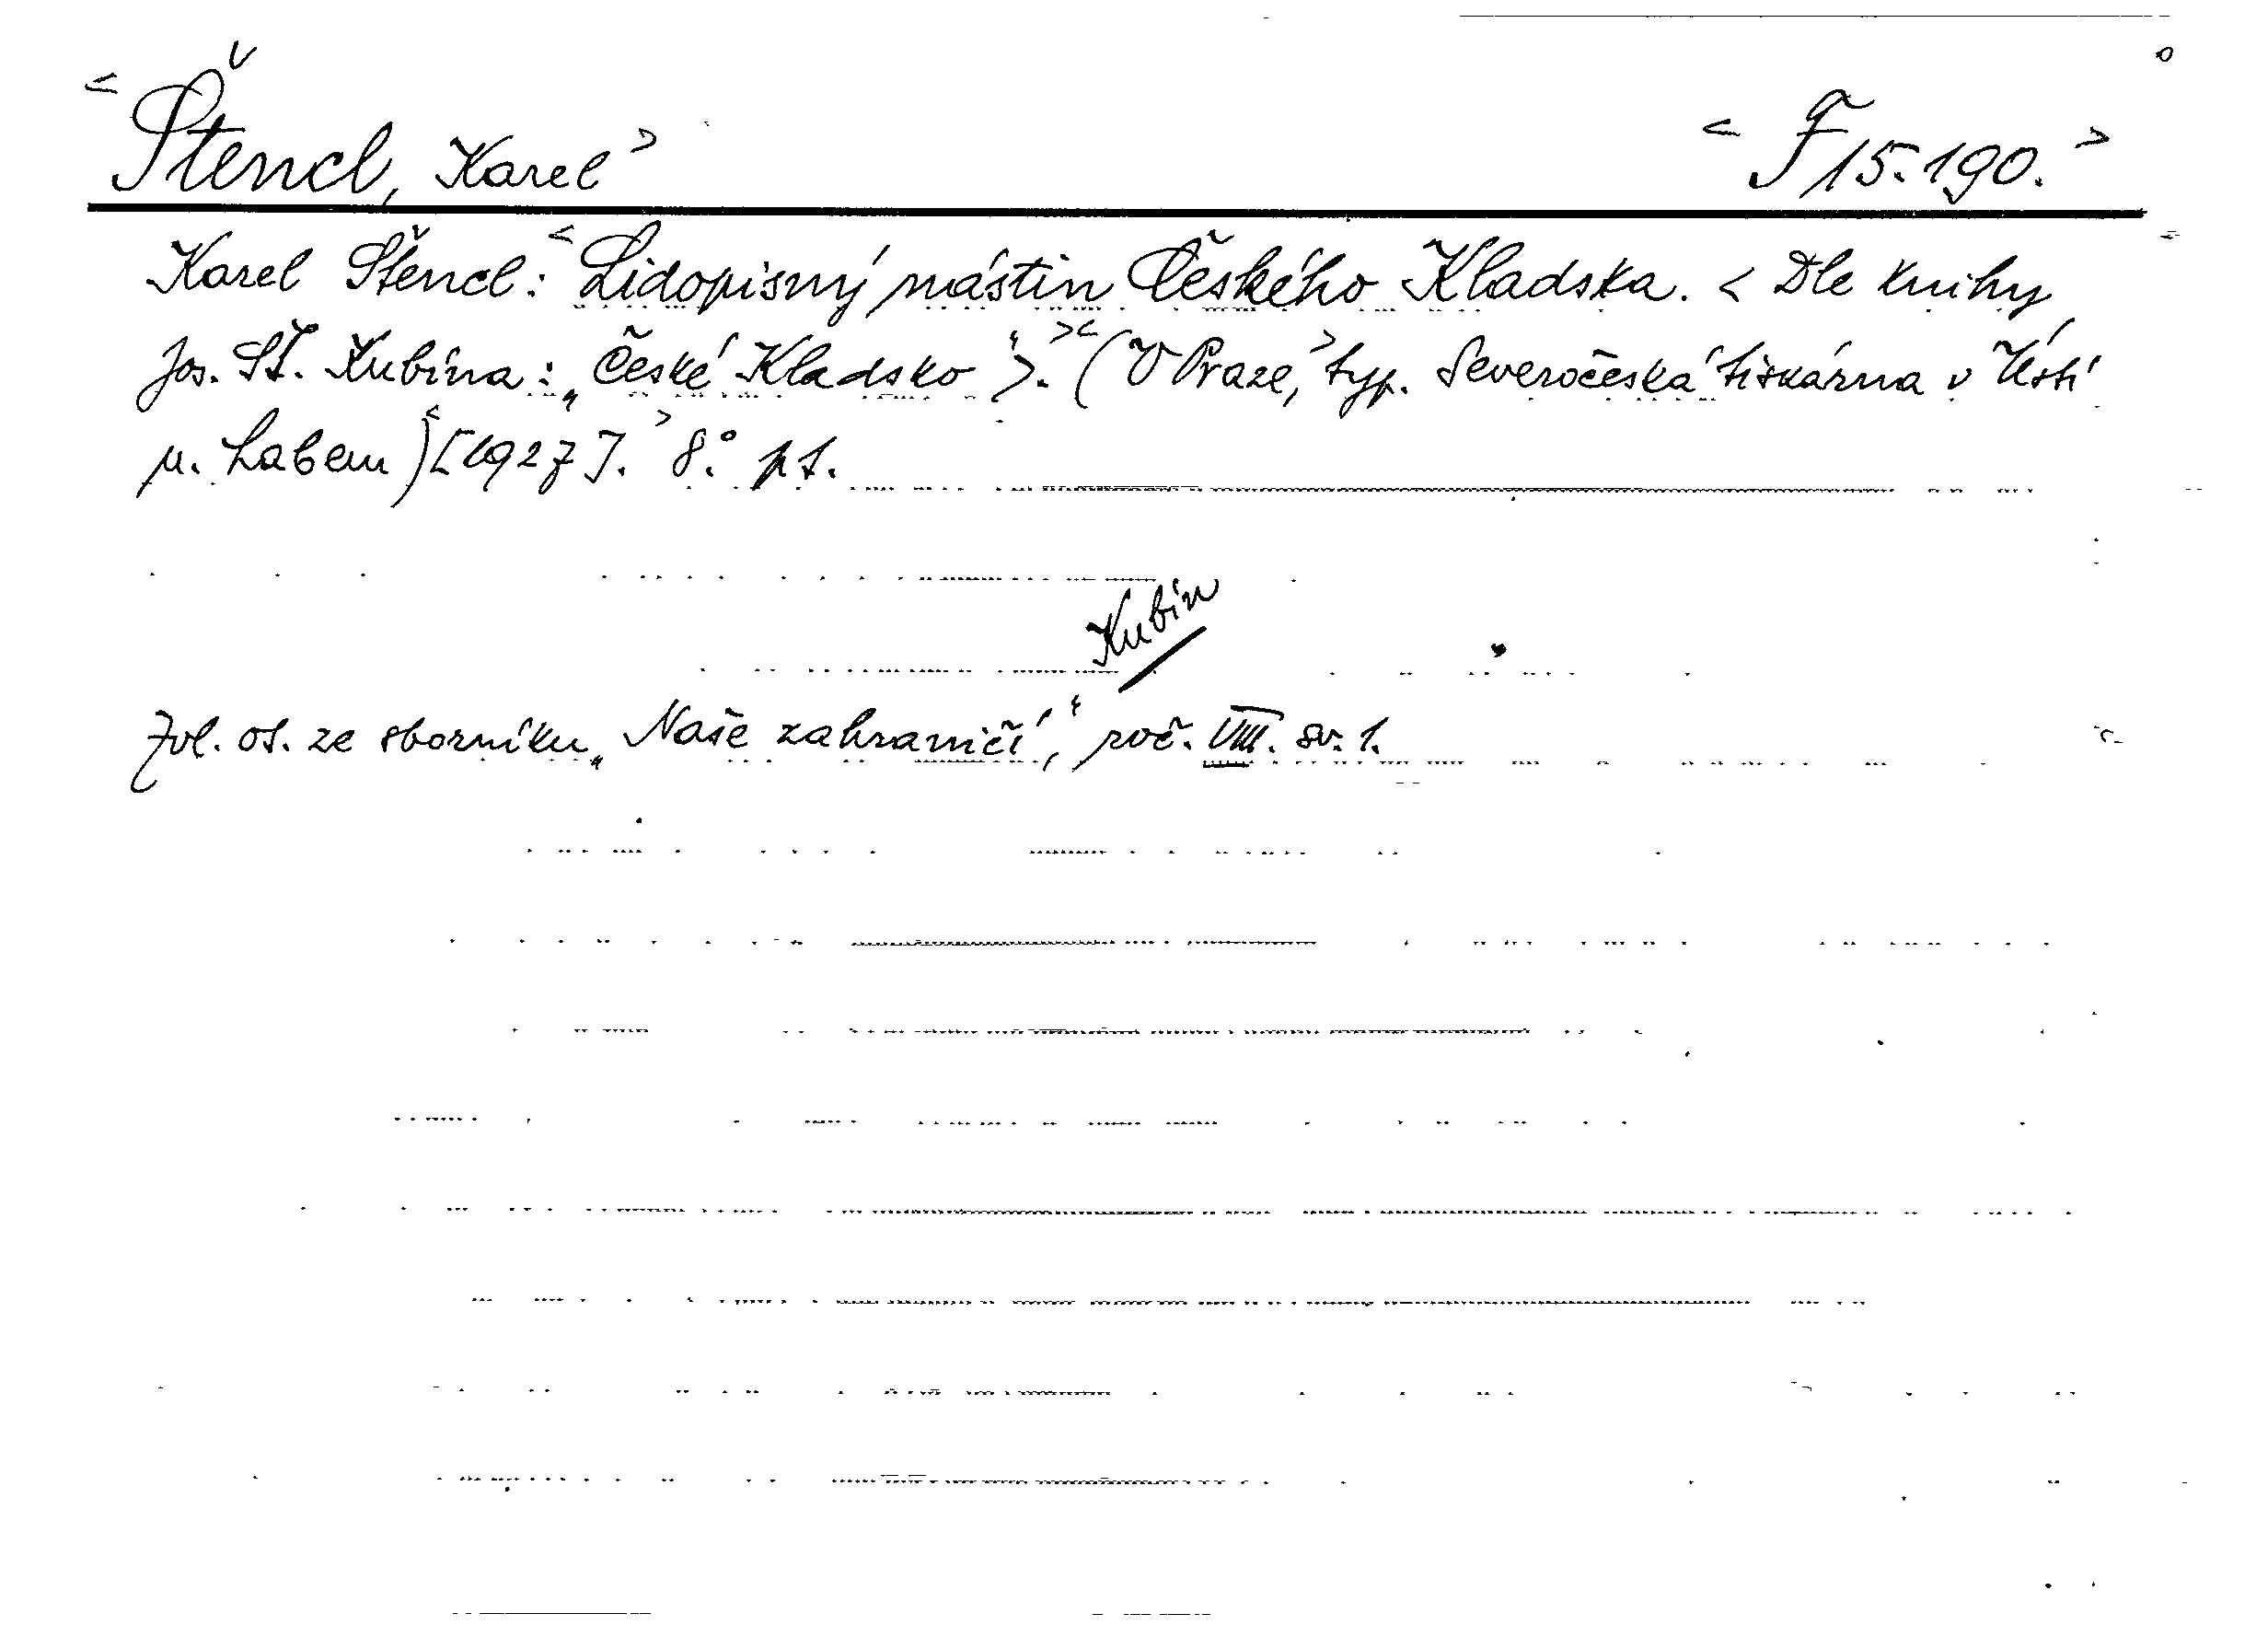 <Štencl, Karel> <F 15.190.>
Karel Štencl: <Lidopisný nástin Českého Kladska. < Dle knihy
Jos. Št. Kubína: „České Kladsko“>.><(V Praze,> typ. Severočeská tiskárna v Ústí
n. Labem)<[1927].> 8.° p 1.
Kubín
Zvl. ot. ze sborníku „Naše zahraničí“, roč. VIII. sv. 1.